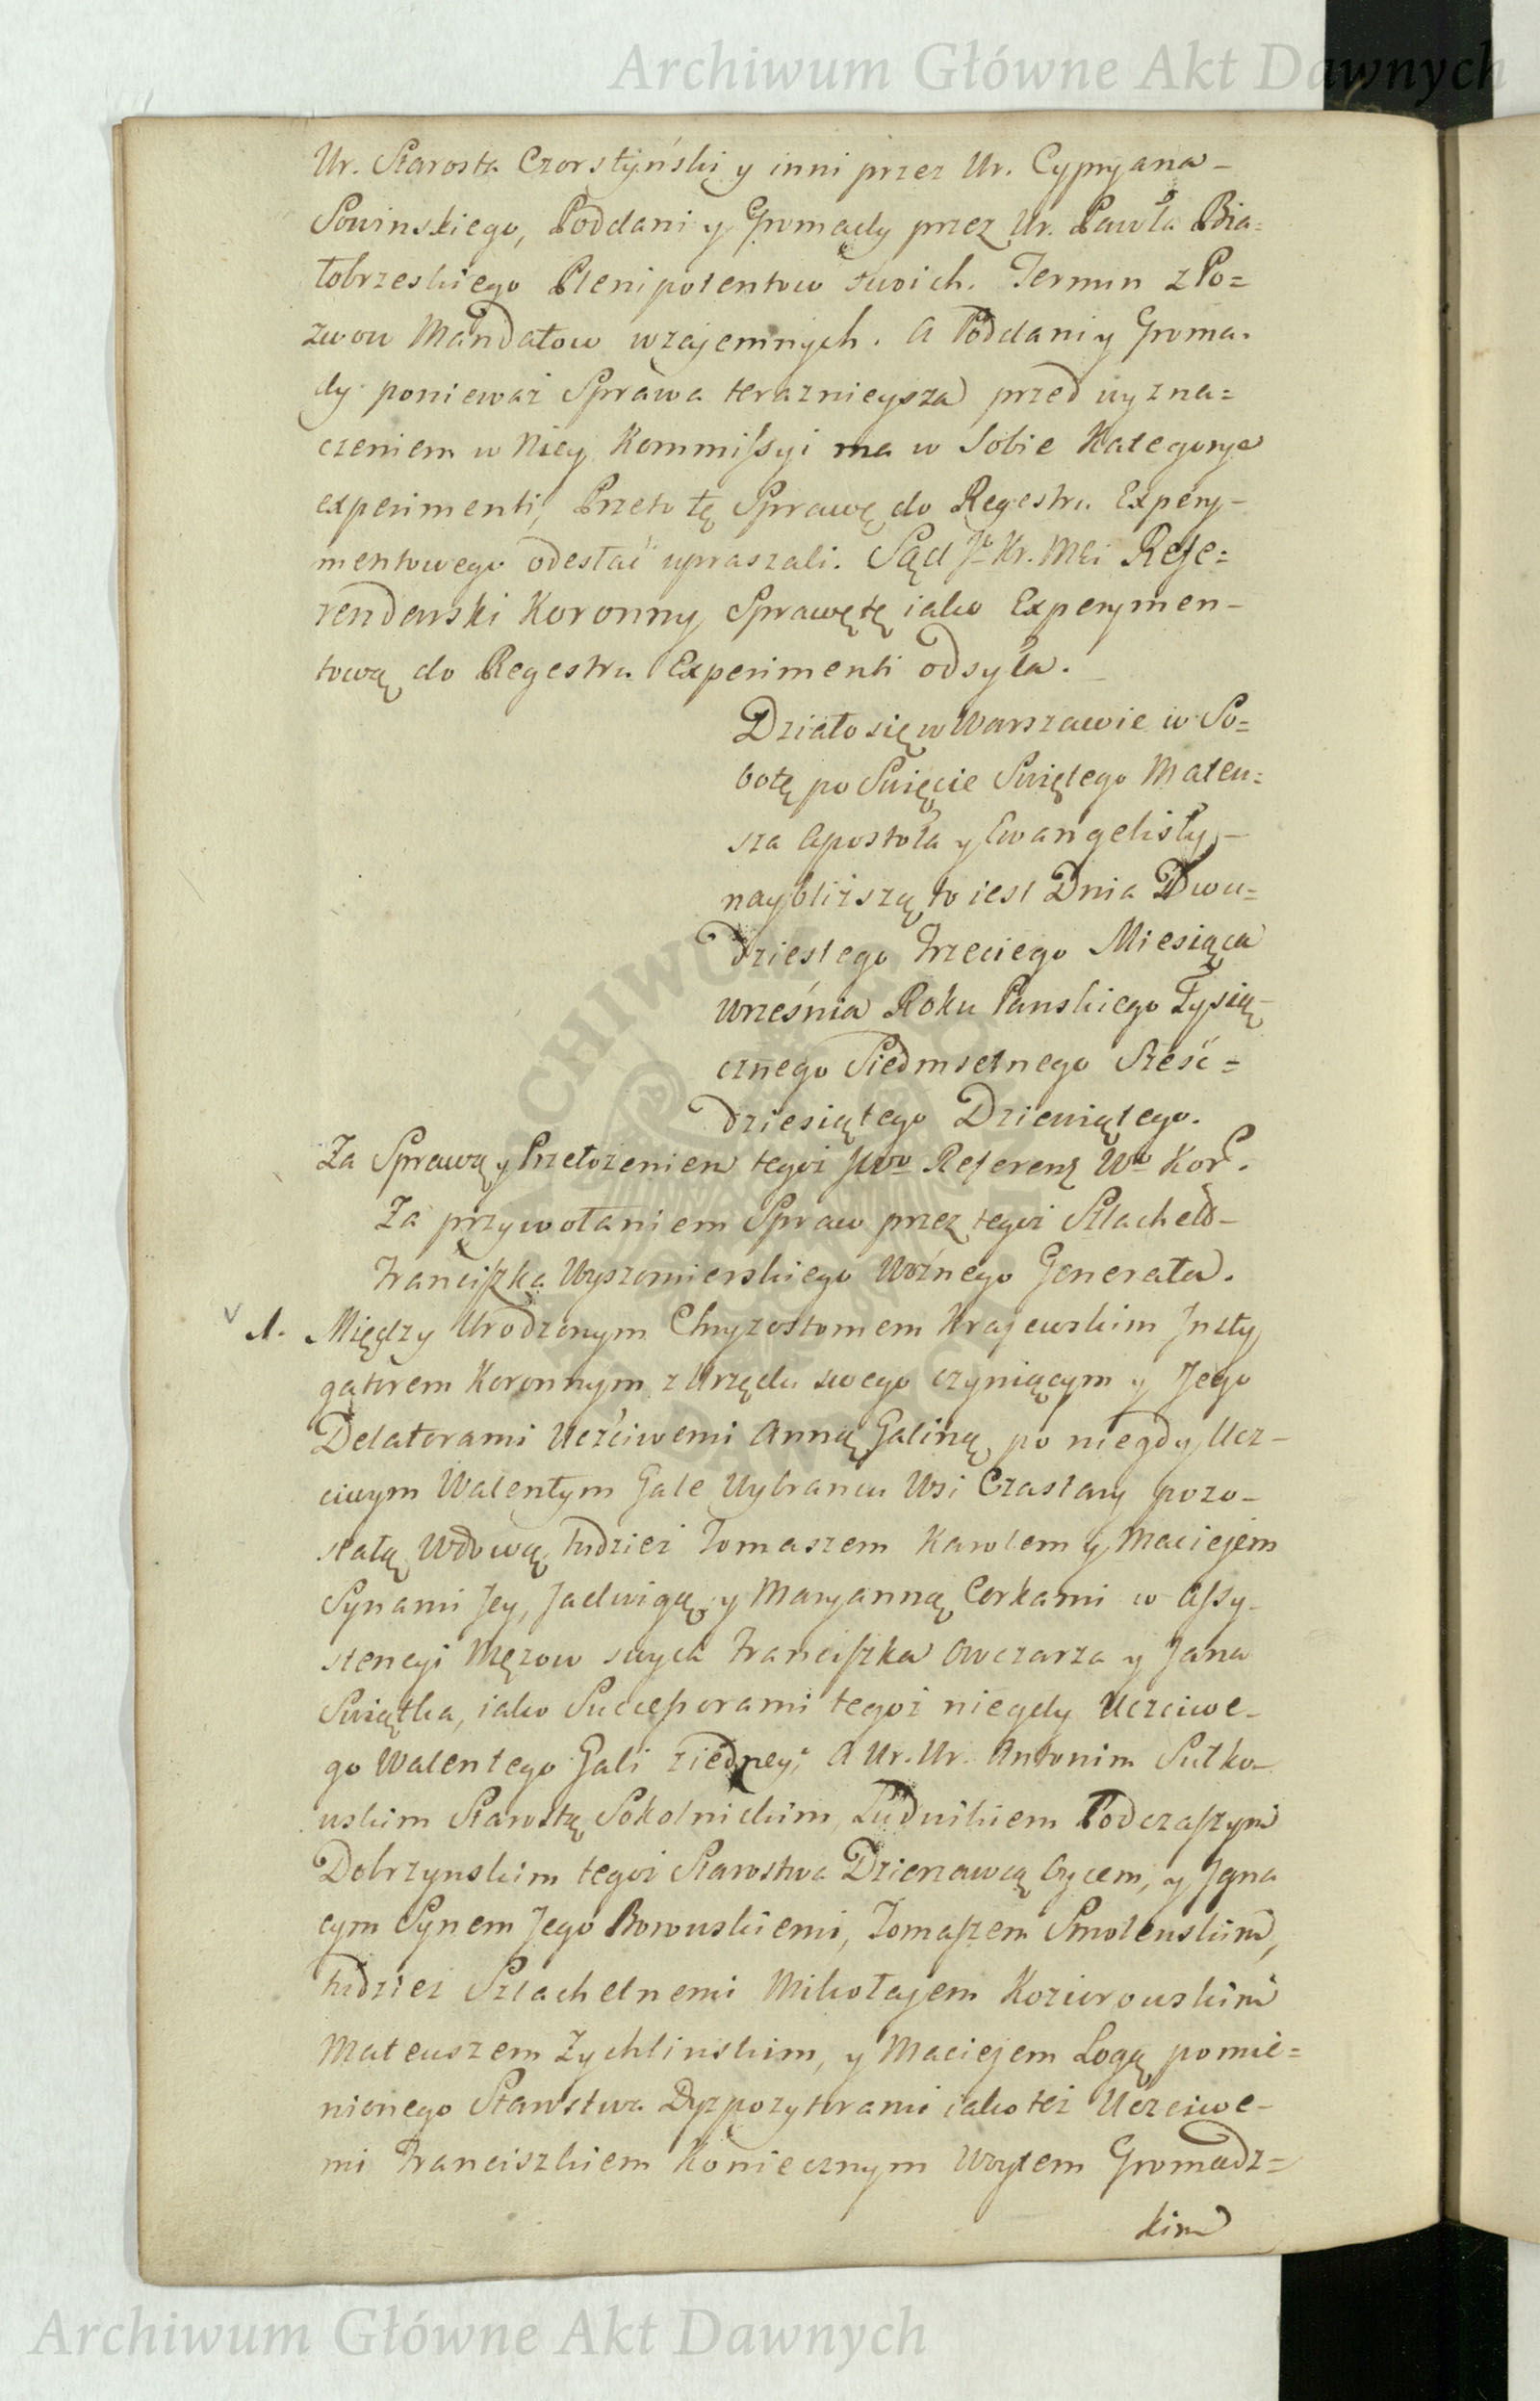 Archiwum Główne Akt Dawnych
Ur. Starosta Czorstyński y inni przez Ur. Cypryana
Sowinskiego, Poddani y Gromady przez Ur. Pawła Bia=
łobrzeskiego Plenipotentow swoich. Termin z Po=
zwow Mandatow wzajemnych. A Poddani y Groma.
dy ponieważ Sprawa teraznieysza przed wyzna=
czeniem w niey Kommissyi ma w sobie Kategorye
experimenti, Przeto tę Sprawę do Regestru Expery-
mentowego odesłać upraszali. Sąd J. Kr. Mci Refe=
rendarski Koronny Sprawę tę iako Experymen-
tową do Regestru Experimenti odsyła.
Działo się w Warszawie w So=
botę po Swięcie Swiętego Mateu=
sza Apostoła y Ewangelisty
naybliższą to iest Dnia Dwu=
dziestego Trzeciego Miesiąca
Września Roku Panskiego Tysią-
cznego Siedmsetnego Sześć=
dziesiątego Dziewiątego.
Za Sprawą y Przełożeniem tegoż Jwo Referen Wo Kor.
Za przywołaniem Spraw przez tegoż Szlachet-
Franciszka Wyszomierskiego Woźnego Generała.
1. Między Urodzonym Chryzostomem Krajewskim Insty
gatorem Koronnym z Urzędu swego czyniącym y Jego
Delatorami Uczciwemi Anną Galiną po niegdy Ucz-
ciwym Walentym Gale Wybrańcu Wsi Czastary pozo-
stałą Wdową, tudzież Tomaszem Karolem y Maciejem
Synami Jey, Jadwigą y Maryanną Corkami w Assy-
stencyi Mężow swych Franciszka Owczarza y Jana
Swiątka, iako Successorami tegoż niegdy Uczciwe-
go Walentego Gali z iedney; A Ur. Ur. Antonim Sułko-
wskim Starostą Sokolnickim, Ludwikiem Podczaszym
Dobrzynskim tegoż Starostwa Dzierzawcą Oycem, y Igna
cym Synem Jego Borowskiemi, Tomaszem Smolenskim,
tudzież Szlachetnemi Mikołajem Koziorowskim
Mateuszem Zychlinskim, y Maciejem Logą pomie=
nionego Starostwa Dyspozytorami iako też Uczciwe-
mi Franciszkiem Koniecznym Woytem Gromadz=
kim
Archiwum Główne Akt Dawnych